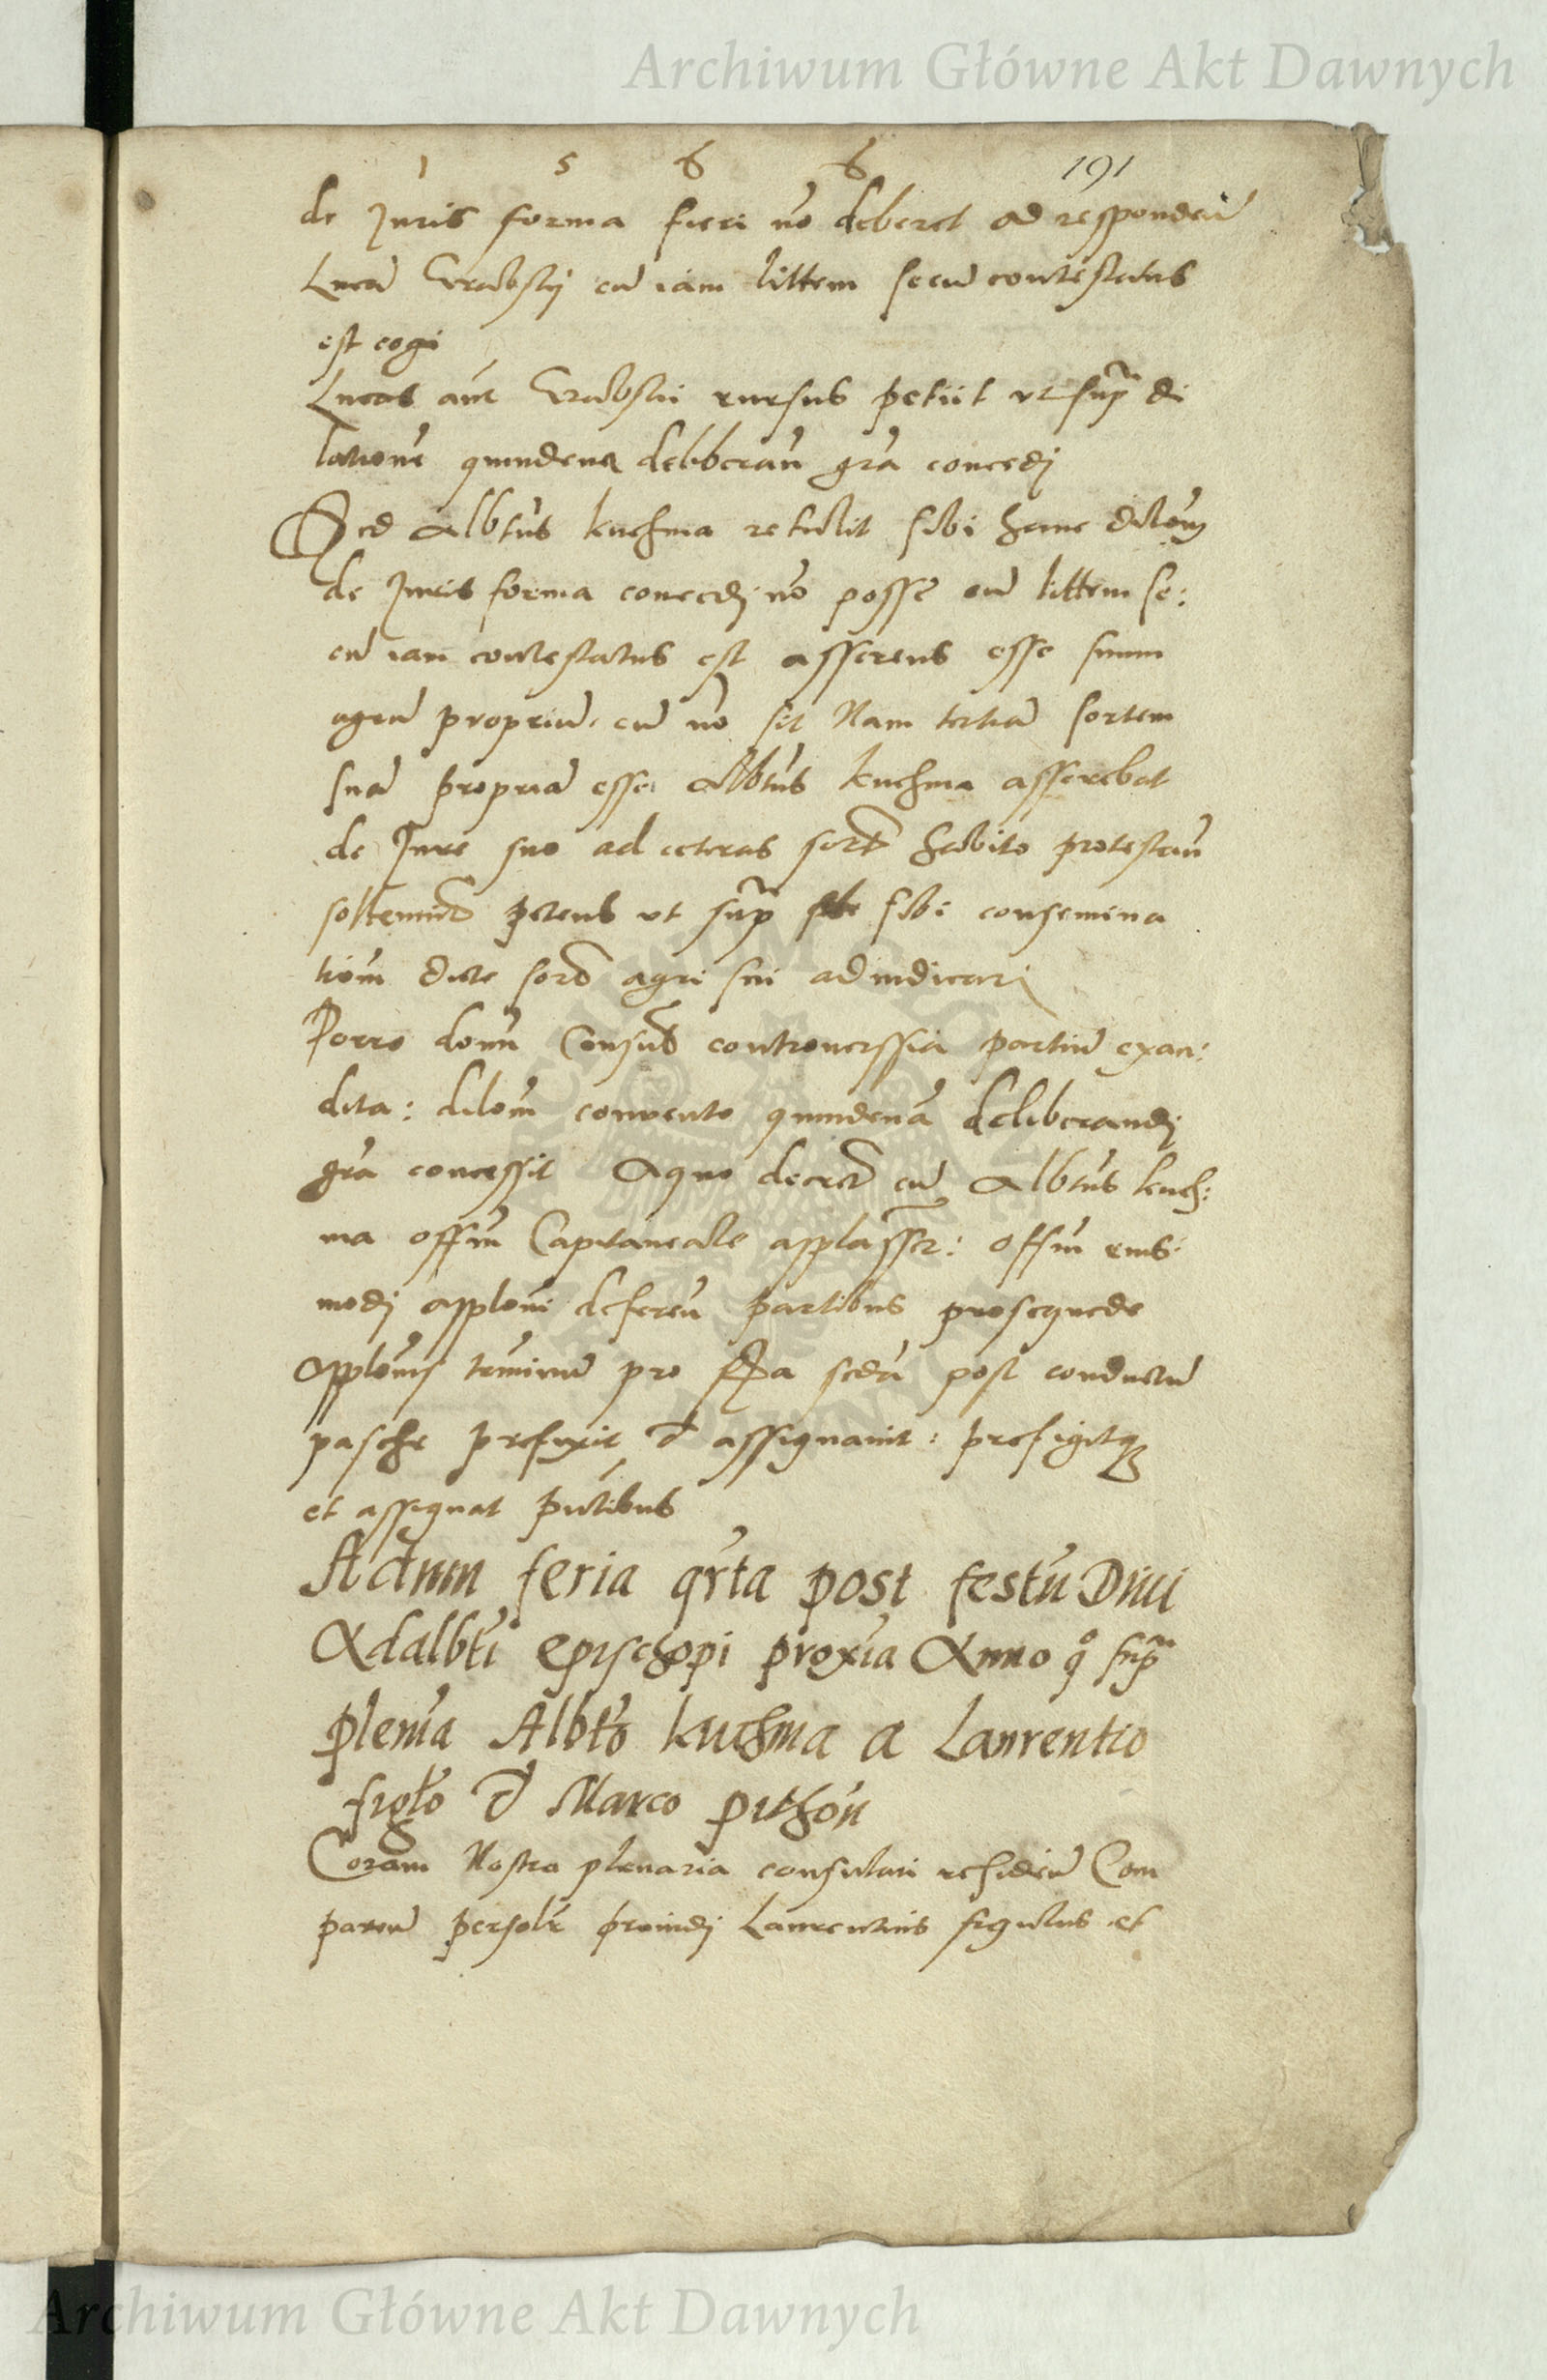 Archiwum Główne Akt Dawnych
1 5 6 6 191
de Juris forma fieri nō deberet ad respondeñ
Lucā cū iam littem secū contestatus
est cogi
Lucas aūt rursus petiit ut sup̃ di
lationē quindenā grā concedj
Sed Albtūs kuchma retulit sibi hanc dilōm
de Juris forma concedj nō posse cū littem se:
cū iam contestatus est asserens esse suum
agrū propriū cū nō sit Nam tertiā sortem
suā propriā esse Albtūs kuchma asserebat
de Jure suo ad ceteras sort habito protestañ
petens ut sup̃ sibi consemina
tiōm dicte sort agri sui adiudicari
Porro domī Consul controuerssia partiū exau:
dita: dilōm conuento quindenā deliberandj
grā concessit Aquo decreto cū Albtūs kuch:
ma offm̄ Capitaneale offm̄ eius
modj applōni defereñ partibus prosequēde
applōnis terminū pro feria scdā post conductū
pasche prefixit et assignauit: prefigitq
et assignat
Actum feria qrta post festū Diui
Adalbti epischopi proxia Anno qo sup̃
plenia Albto kuchma a Laurentio
figlo et Marco pithōn
Coram Nostra plenaria consulari residen Com
paren persolr prouidj Laurentius figulus et
Archiwum Główne Akt Dawnych